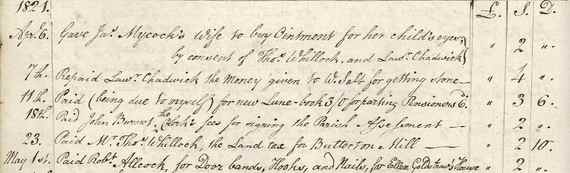 1821. £. S. D.
Apr. 6. Gave Jas. Mycock's Wife to buy Ointment for her child's eyes
by consent of Thos. Whillock, and Lawr. Chadwick " 2 ".
7th. Repaid Lawr. Chadwick the Money given to W. Salt for getting stone — " 4 ".
11th. Paid (being due to myself) for new Lune-book 3/0 for parting 6d. " 3 6.
18th. Paid John Burns, the Clerk's fees for signing the Parish Assessment — " 2 ".
23. Paid Mr. Thos. Whillock, the Land tax for Butterton Mill — " 2 10.
May 1st. Paid Robt. Allcock, for Door bands, Hooks, and Nails, for Ellen House " 2 ".